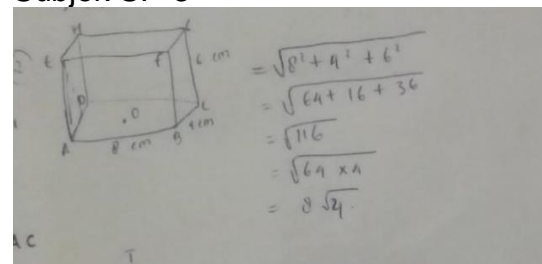 H
E F 6 cm
D C
O 4 cm
A 8 cm B
= √8² + 4² + 6²
= √64 + 16 + 36
= √116
= √64 x 4
= 8 √4.
AC
T